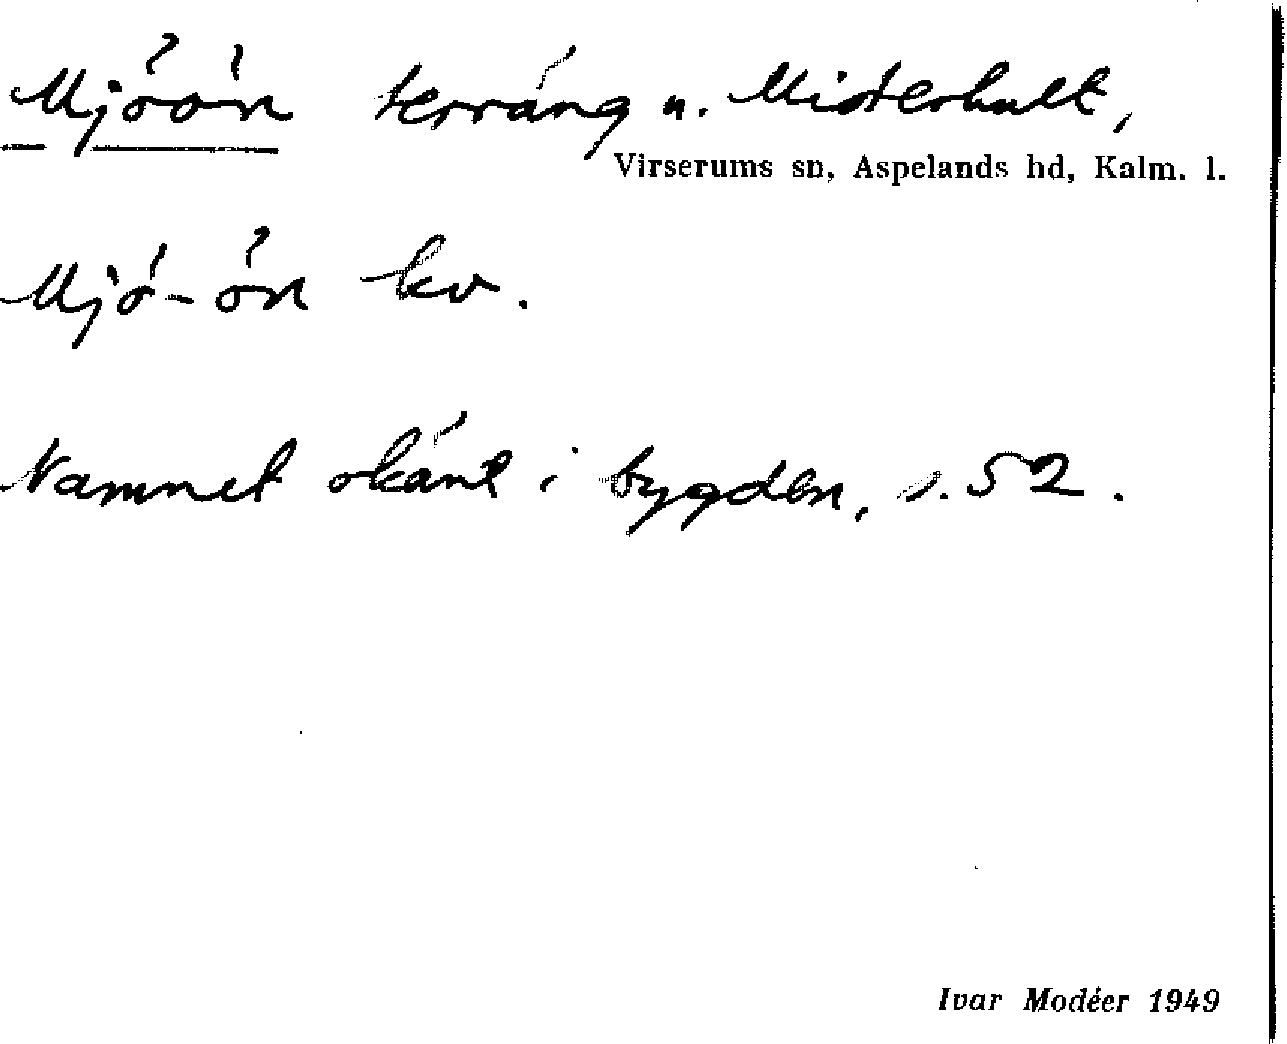 Mjöön terräng u. Misterhult,
Virserums sn, Aspelands hd, Kalm. l.
Mjö-ön kv.
Namnet okänt i bygden, s. 52.
Ivar Modéer 1949